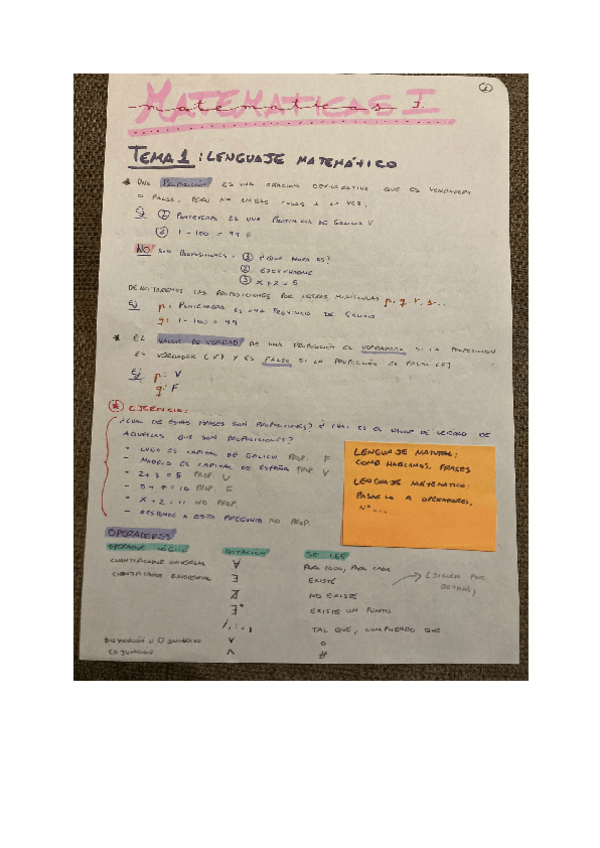 MATEMATICAS I
matematicas I
1
TEMA 1: LENGUAJE MATEMÁTICO
* UNA PROPOSICIÓN ES UNA ORACIÓN DECLARATIVA QUE ES VERDADERA
O FALSA, PERO NO AMBAS COSAS A LA VEZ.
Ej 1 PONTEVEDRA ES UNA PROVINCIA DE GALICIA V
2 1-100 = 99 F
NO SON PROPOSICIONES: 1 ¿QUE HORA ES?
2 ESCUCHADME
3 X+2=5
DENOTAREMOS LAS PROPOSICIONES POR LETRAS MINÚSCULAS p, q, r, s...
Ej p: PONTEVEDRA ES UNA PROVINCIA DE GALICIA
q: 1-100 = 99
* EL VALOR DE VERDAD DE UNA PROPOSICIÓN ES VERDADERO SI LA PROPOSICIÓN
ES VERDADERA (V) Y ES FALSO SI LA PROPOSICIÓN ES FALSA (F)
Ej p: V
q: F
* EJERCICIO:
¿CUAL DE ESTAS FRASES SON PROPOSICIONES? ¿ CUAL ES EL VALOR DE VERDAD DE
AQUELLAS QUE SON PROPOSICIONES?
- LUGO ES CAPITAL DE GALICIA PROP. F
- MADRID ES CAPITAL DE ESPAÑA PROP V
- 2+3=5 PROP. V
- 5+7=10 PROP. F
- X+2=11 NO PROP.
- RESPONDE A ESTA PREGUNTA NO PROP.
LENGUAJE NATURAL:
COMO HABLAMOS, FRASES
LENGUAJE MATEMÁTICO:
PASARLO A OPERADORES,
Nº...
OPERADORES
OPERADOR LÓGICO NOTACIÓN SE LEE
CUANTIFICADOR UNIVERSAL ∀ PARA TODO, PARA CADA
CUANTIFICADOR EXISTENCIAL ∃ EXISTE → (SIGUEN POR DETRÁS)
∄ NO EXISTE
EXISTE UN
TAL QUE, CUMPLIENDO QUE
DISYUNCIÓN U O INCLUSIVO ∨ O
CONJUNCIÓN ∧